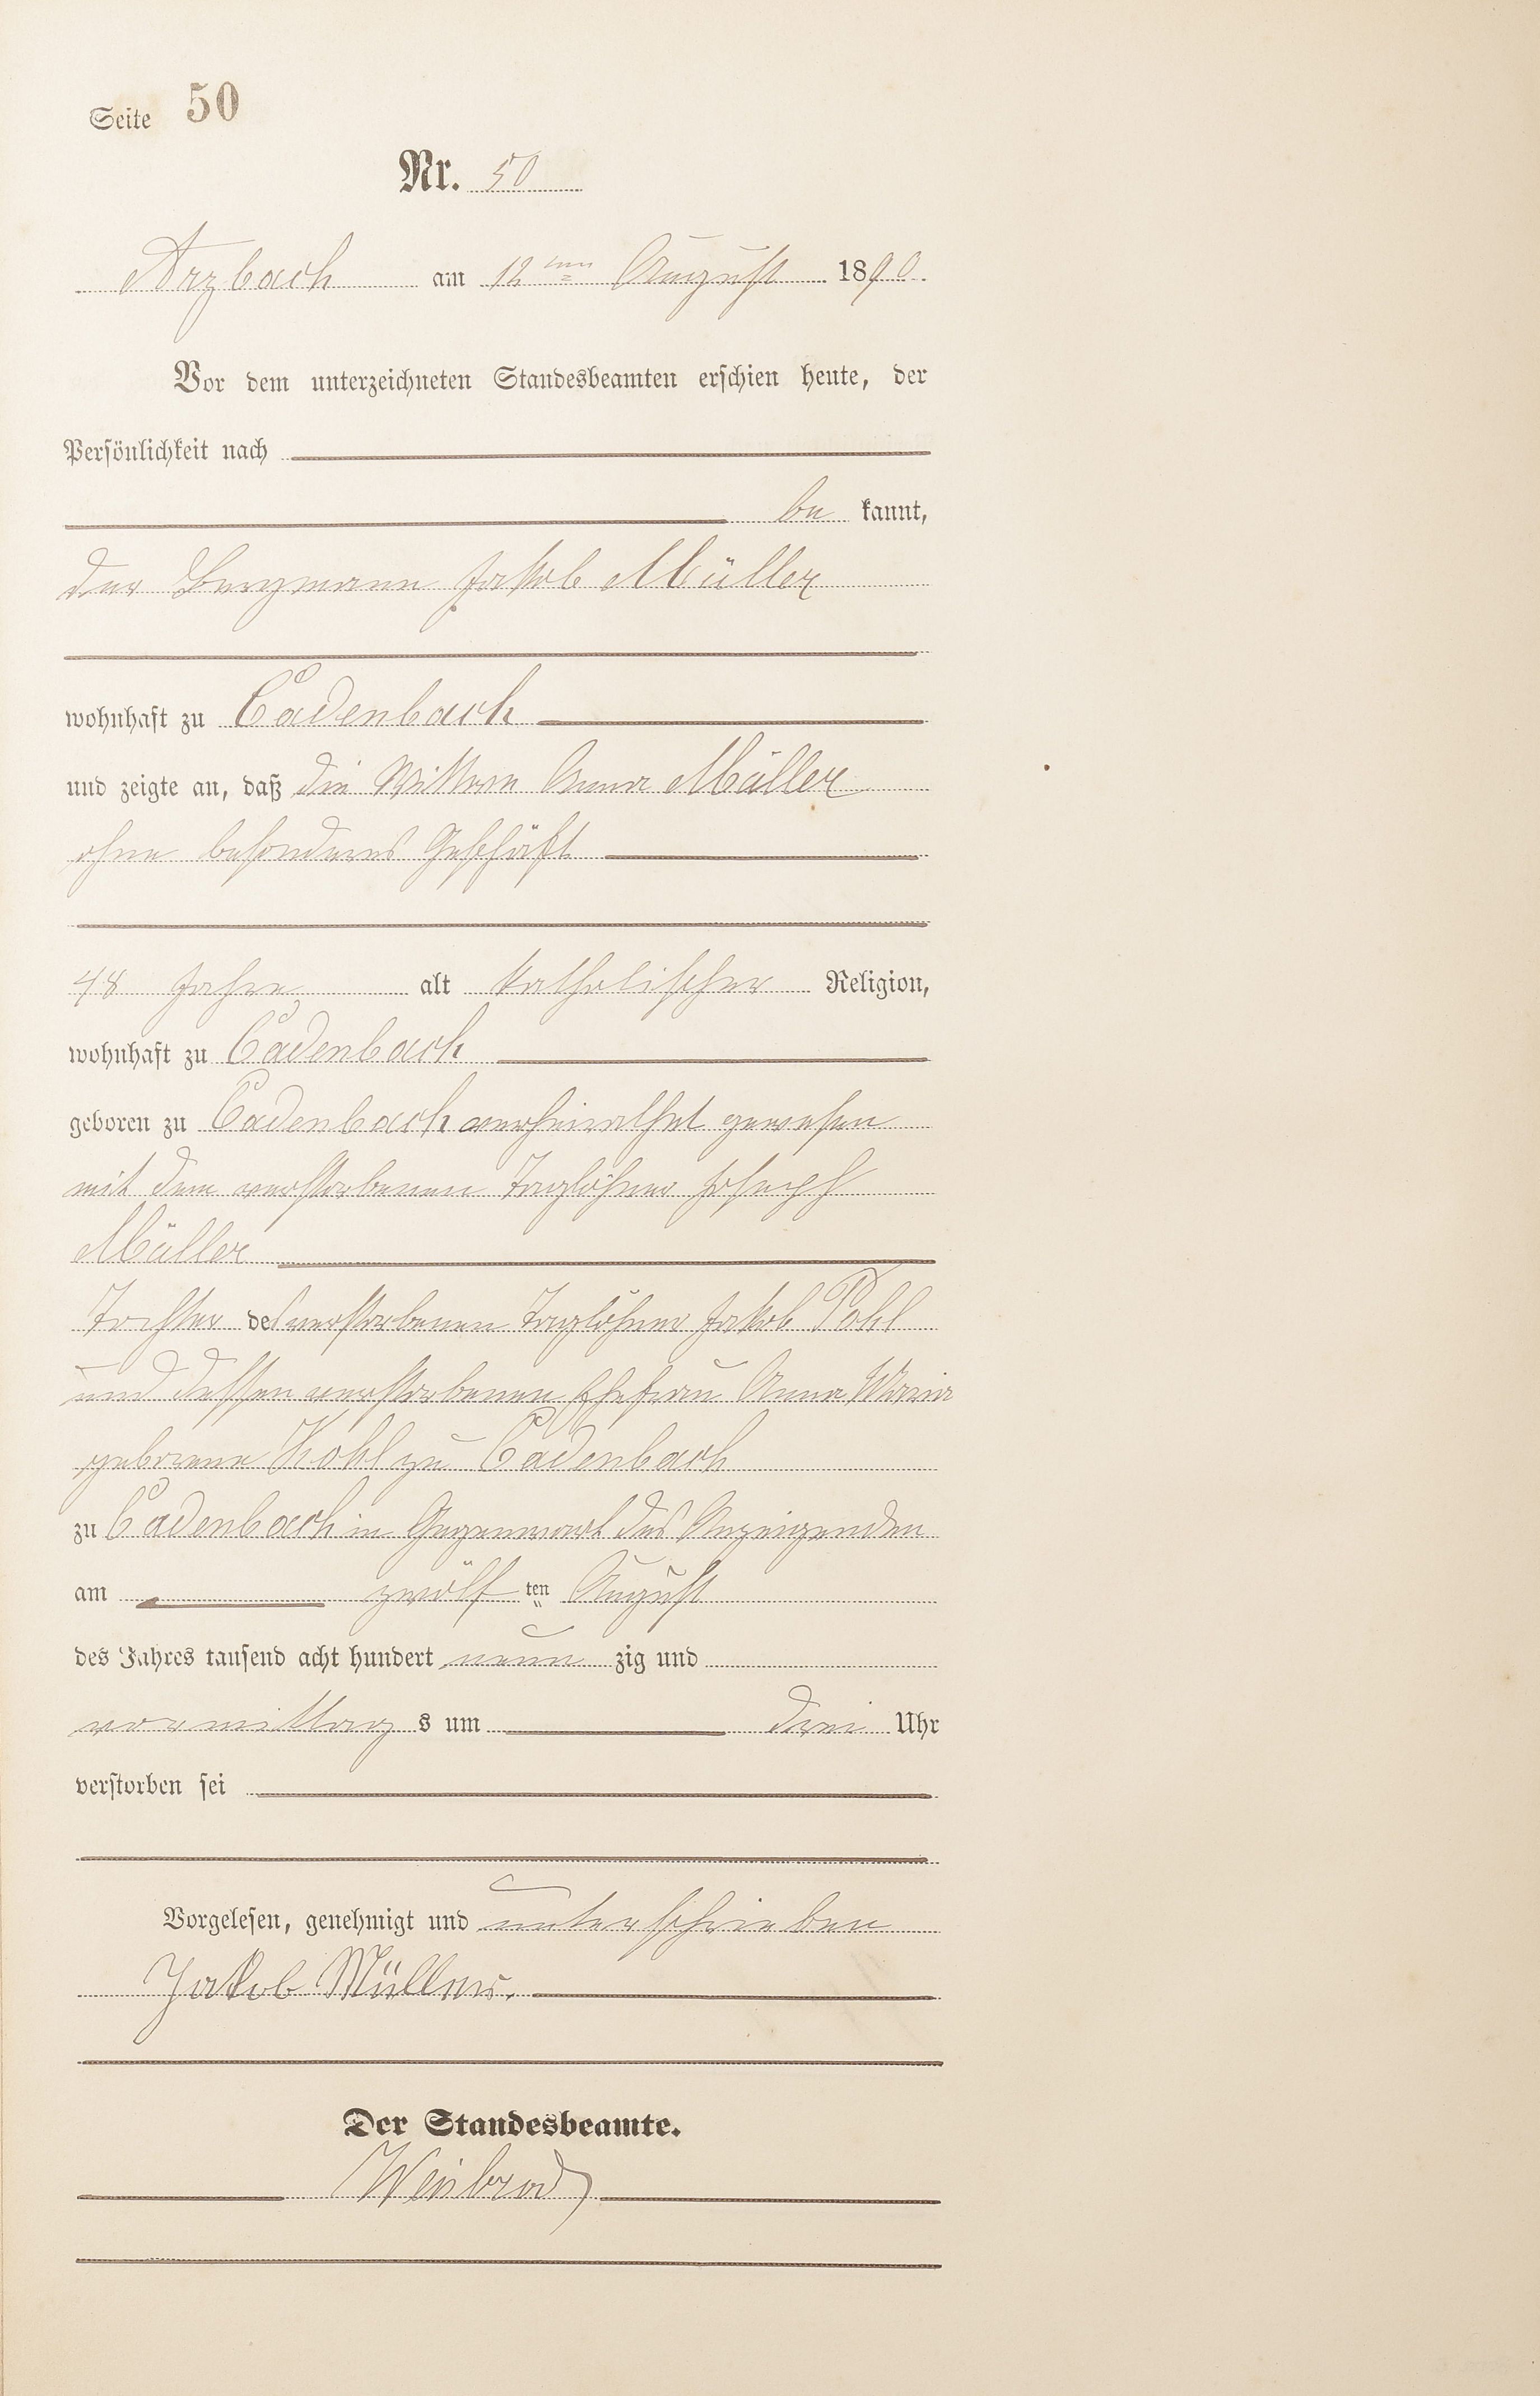 Seite 50
Nr. 50
Arzbach am 12ten August 1890.
Vor dem unterzeichneten Standesbeamten erschien heute, der
Persönlichkeit nach
be kannt,
der Bergmann Jakob Müller
wohnhaft zu Cadenbach
und zeigte an, daß die Wittwe Anna Müller
ohne besonderes Geschäft
48 Jahre alt katholischer Religion,
wohnhaft zu Cadenbach
geboren zu Cadenbach verheirathet gewesen
mit dem verstorbenen Taglöhner Joseph
Müller
Tochter des verstorbenen Taglöhner Jakob Pohl
und dessen verstorbenen Ehefrau Anna Maria
geborene Kohl zu Cadenbach
zu Cadenbach in Gegenwart des Anzeigenden
am zwölf ten August
des Jahres tausend acht hundert neun zig und
vormittag s um drei Uhr
verstorben sei
Vorgelesen, genehmigt und unterschrieben
Jakob Müller.
Der Standesbeamte.
Weinbrod